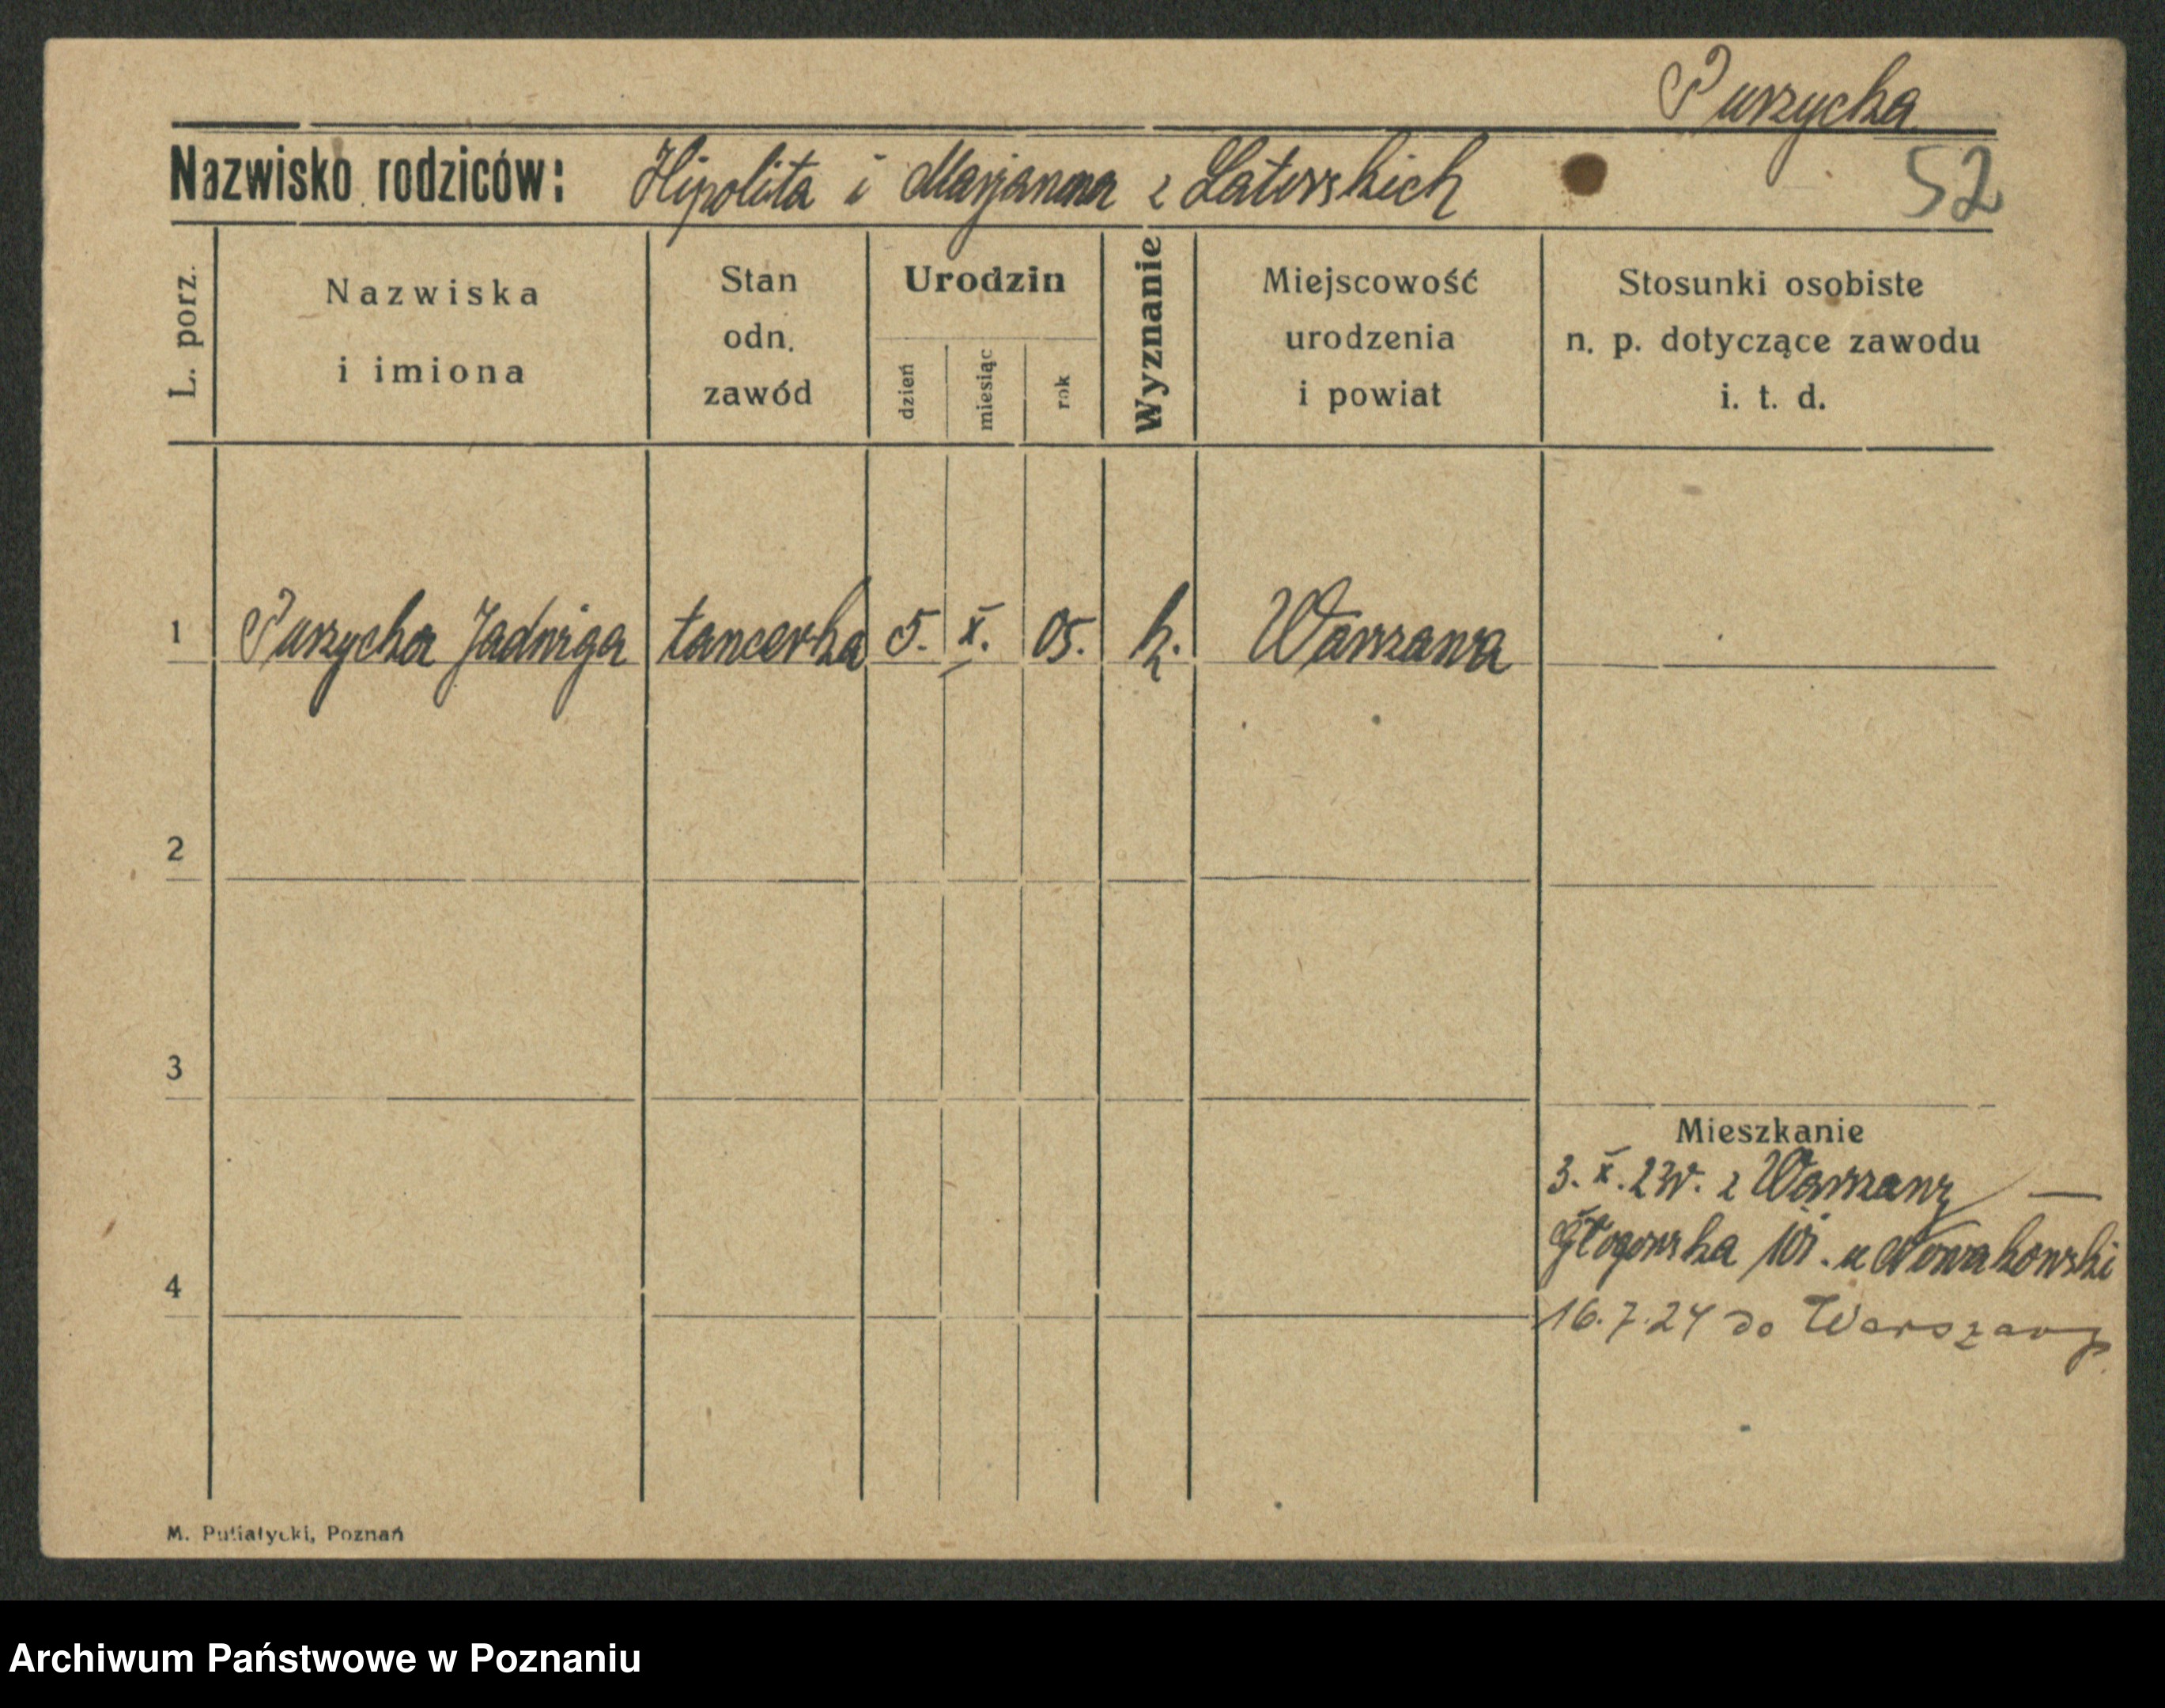 Puszycka
Nazwisko rodziców: Hipolita i Marjanna z Latorskich
52
L. porz.
Nazwiska
i imiona
Stan
odn.
zawód
Urodzin
dzień
miesiąc
rok
Wyznanie
Miejscowość
urodzenia
i powiat
Stosunki osobiste
n. p. dotyczące zawodu
i. t. d.
1 Puszycka Jadwiga tancerka 5. X. 05. k. Warszawa
2
3
Mieszkanie
3. X. 23r. z Warszawy —
Głogowska u Nowakowski
4
16.7.24 do Warszawy
M. Putiatycki, Poznań
Archiwum Państwowe w Poznaniu